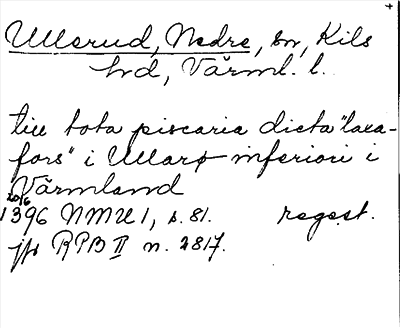 Ullerud, Nedre, sn, Kils
hd, Värml. l.
till tota piscaria dicta "laxa-
fors" i Ullarø inferiori i
Värmland
20/6
1396 NMU 1, s. 81. regest.
jfr RPB II n. 2817.